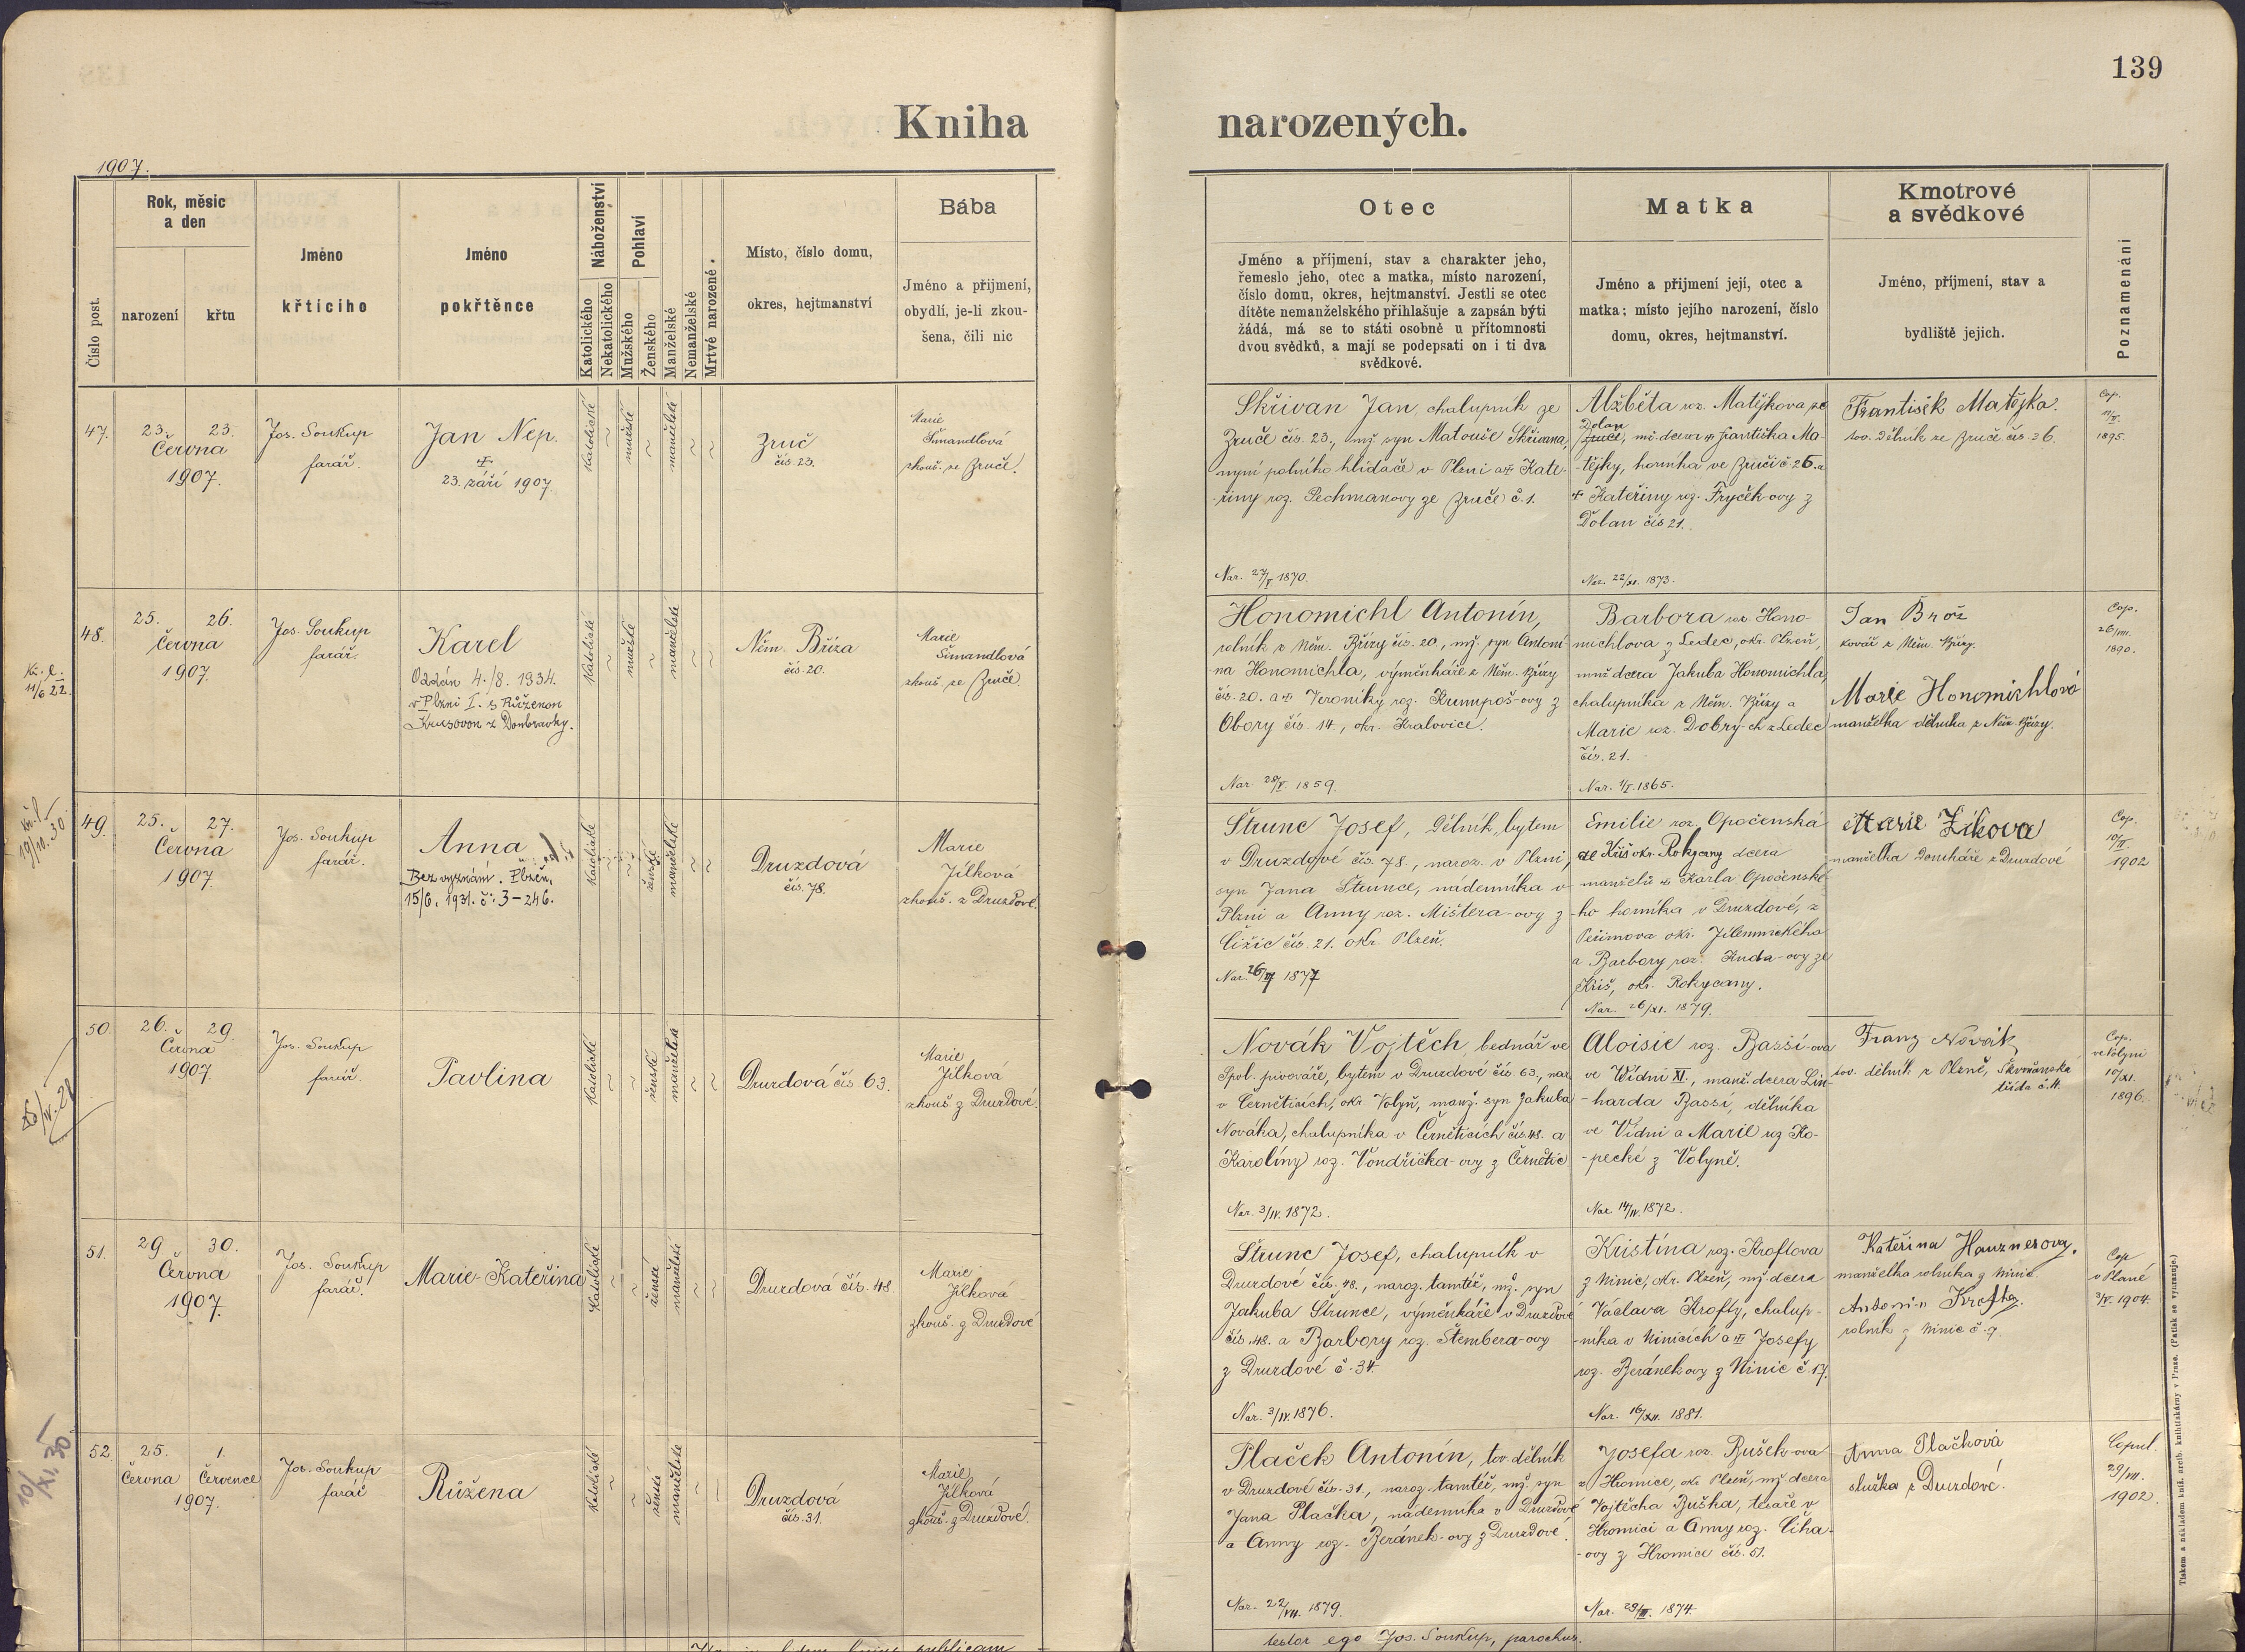 139
Kniha narozených.
1907.
Číslo post.
Rok, měsíc
a den
narození
křtu
Jméno
křtícího
Jméno
pokřtěnce
Náboženství
Katolického
Nekatolického
Pohlaví
Mužského
Ženského
Manželské
Nemanželské
Mrtvě narozené.
Místo, číslo domu,
okres, hejtmanství
Bába
Jméno a přijmení,
obydlí, je-li zkou-
šena, čili nic
Otec
Jméno a příjmení, stav a charakter jeho,
řemeslo jeho, otec a matka, místo narození,
číslo domu, okres, hejtmanství. Jestli se otec
dítěte nemanželského přihlašuje a zapsán býti
žádá, má se to státi osobně u přítomnosti
dvou svědků, a mají se podepsati on i ti dva
svědkové.
Matka
Jméno a přijmení její, otec a
matka; místo jejího narození, číslo
domu, okres, hejtmanství.
Kmotrové
a svědkové
Jméno, příjmení, stav a
bydliště jejich.
Poznamenání
47.
23. 23.
Června
1907.
Jos. Soukup
farář.
Jan Nep.
23. září 1907.
katolické
mužské
manželské
Zruč
čís. 23.
Marie
Šimandlová
zkouš. ze Zruče.
Skřivan Jan, chalupník ze
Zruče čís. 23., mž. syn Matouše Skřivana,
nyní polního hlídače v Plzni a † Kate-
-řiny roz. Pechmanovy ze Zruče č. 1.
Nar. 27/V. 1870.
Alžběta roz. Matějkova ze
Dolan
Zruče, mž. dcera † Františka Ma-
-tějky, horníka ve Zruči č. 26. a
† Kateřiny roz. Fryček-ovy z
Dolan čís 21.
Nar. 22/XI. 1873.
František Matějka.
tov. dělník ze Zruče čís. 26.
Cop.
1895.
48.
Kř. l.
11/6 22.
25. 26.
Června
1907.
Jos. Soukup
farář.
Karel
Oddán 4./8. 1934.
v Plzni I. s Růženou
Krusovou z Doubravky.
katolické
mužské
manželské
Něm. Bříza
čís. 20.
Marie
Šimandlová
zkouš. ze Zruče.
Honomichl Antonín,
rolník z Něm. Břízy čís. 20., mž. syn Antoní
na Honomichla, výměnkáře z Něm. Břízy
čís. 20. a † Veroniky roz. Krumpoš-ovy z
Obory čís. 14., okr. Kralovice.
Nar. 28/V. 1859.
Barbora roz. Hono-
michlova z Ledec, okr. Plzeň,
mnž dcera Jakuba Honomichla,
chalupníka z Něm. Břízy a
Marie roz. Dobrý-ch z Ledec
čís. 21.
Nar. 1/I. 1865.
Jan Brož
kovář z Něm. Břízy.
Marie Honomichlová
manželka dělníka z Něm. Břízy.
Cop.
26/VIII.
1890.
49.
kř. l.
25. 27.
Června
1907.
Jos. Soukup
farář.
Anna
Bez vyznání. Plzeň,
15/6. 1931. č: 3-246.
katolické
ženské
manželské
Druzdová
čís. 78.
Marie
Jílková
zkouš. z Druzdové.
Štrunc Josef, dělník, bytem
v Druzdové čís. 78., naroz. v Plzni,
syn Jana Štrunce, nádenníka v
Plzni a Anny roz. Mištera-ovy z
Čižic čís. 21. okr. Plzeň.
1877
Emilie roz. Opočenská
ze Kříš okr. Rokycany dcera
manželů † Karla Opočenské-
-ho horníka v Druzdové, z
Peřimova okr. Jilemnického
a Barbory roz. Kuda-ovy ze
Kříš, okr. Rokycany.
Nar. 26/XI. 1879.
Marie Žíkova
manželka domkáře z Druzdové
Cop.
1902
50.
26. 29.
Června
1907
Jos. Soukup
farář.
Pavlina
katolické
ženské
manželské
Druzdová čís 63.
Marie
Jílková
zkouš z Druzdové.
Novák Vojtěch, bednář ve
Spol. pivováře, bytem v Druzdové čís. 63., nar.
v Černěticích, okr. Volyň, manž. syn Jakuba
Nováka, chalupníka v Černěticích čís 48. a
Karolíny roz. Vondřička-ovy z Černětic
Nar. 3/IV. 1872.
Aloisie roz. Bassí-ova
ve Vídni XI., manž. dcera Lin-
-harda Bassí, dělníka
ve Vídni a Marie roz Ko-
-pecké z Volyně.
Nar 14/IV. 1872.
Franz Novák
tov. dělník z Plzně, Skvrňanská
třída č. 4.
Cop.
ve Volyni
10/XI.
1896.
51.
29 30.
Června
1907.
Jos. Soukup
farář.
Marie-Kateřina
katolické
ženské
manželské
Druzdová čís. 48.
Marie
Jílková
zkouš. z Druzdové
Štrunc Josef, chalupník v
Druzdové čís. 48., naroz. tamtéž, mž. syn
Jakuba Štrunce, výměnkáře v Druzdové
čís. 48. a Barbory roz. Štembera-ovy
z Druzdové č. 34.
Nar. 3/IV. 1876.
Kristína roz. Kroftova
z Ninic, okr. Plzeň, mž dcera
Václava Krofty, chalup-
-níka v Ninicích a † Josefy
roz. Beránek ovy z Ninic č 17.
Nar. 16/XII. 1881.
Kateřina Hauznerova,
manželka rolníka z Ninic.
Antonín Krofta,
rolník z Ninic č. 9.
Cop
v Plané
3/V. 1904.
52
25. 1.
Června Července
1907.
Jos. Soukup
farář
Růžena
katolické
ženské
manželské
Druzdová
čís. 31.
Marie
Jílková
zkouš. z Druzdové.
Plaček Antonín, tov. dělník
v Druzdové čís. 31., naroz. tamtéž, mž. syn
Jana Plačka, nádenníka v Druzdové
a Anny roz. Beránek-ovy z Druzdové.
Nar. 22/VII. 1879.
Josefa roz. Bušek-ova
z Hromice, okr. Plzeň, mž dcera
Vojtěcha Buška, tesaře v
Hromici a Anny roz. Čiha-
-ovy z Hromice čís. 51.
Nar. 29/III. 1874.
Anna Plačková
služka z Druzdové.
Copul.
29/VII.
1902.
publicam
testor ego Jos. Soukup, parochus.
Tiskem a nákladem kníž. arcib. knihtiskárny v Praze. (Patisk se vyhrazuje.)